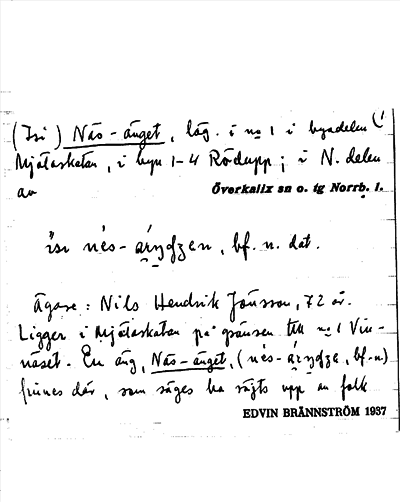 (Isi) Näs-änget, läg. i no 1 i byadelen (
Mjölaskatan, i byn 1-4 Rödupp; i N. delen
av Överkalix sn o. tg Norrb. l.
isı nẹ́s-áryʤen, bf. n. dat.
Ägare: Nils Hendrik Jönsson, 72 år.
Ligger i Mjölaskatan på gränsen till no 1 Vin-
näset. En äng, Näs-änget, (nés- , bf.n)
finnes där, som säges ha röjts upp av folk
EDVIN BRÄNNSTRÖM 1937